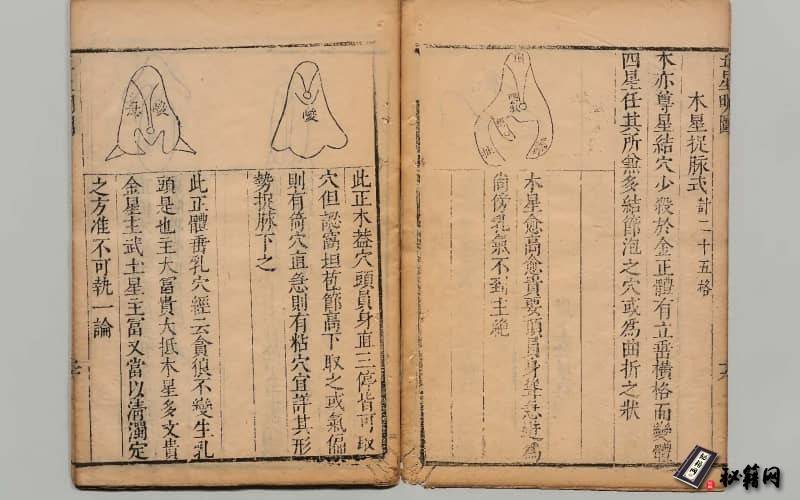 木星捉脉式計二十五格
木亦尊星結穴少殺於金正體有立垂橫格而變體
四星任其所兼多結節泡之穴或為曲折之狀
木星愈高愈貴要頂員身聳為
尚傍乳氣不到主絶
峻
此正木葢穴頭員身直三停皆可取
穴但認窩坦苞節高下取之或氣偏
則有倚穴直急則有粘穴宜詳其形
勢捉脉下之
峻
此正體垂乳穴經云貪狼不變生乳
頭是也主大富貴大抵木星多文貴
金星主武土星主富又當以清濁定
之方准不可執一論
秘籍网